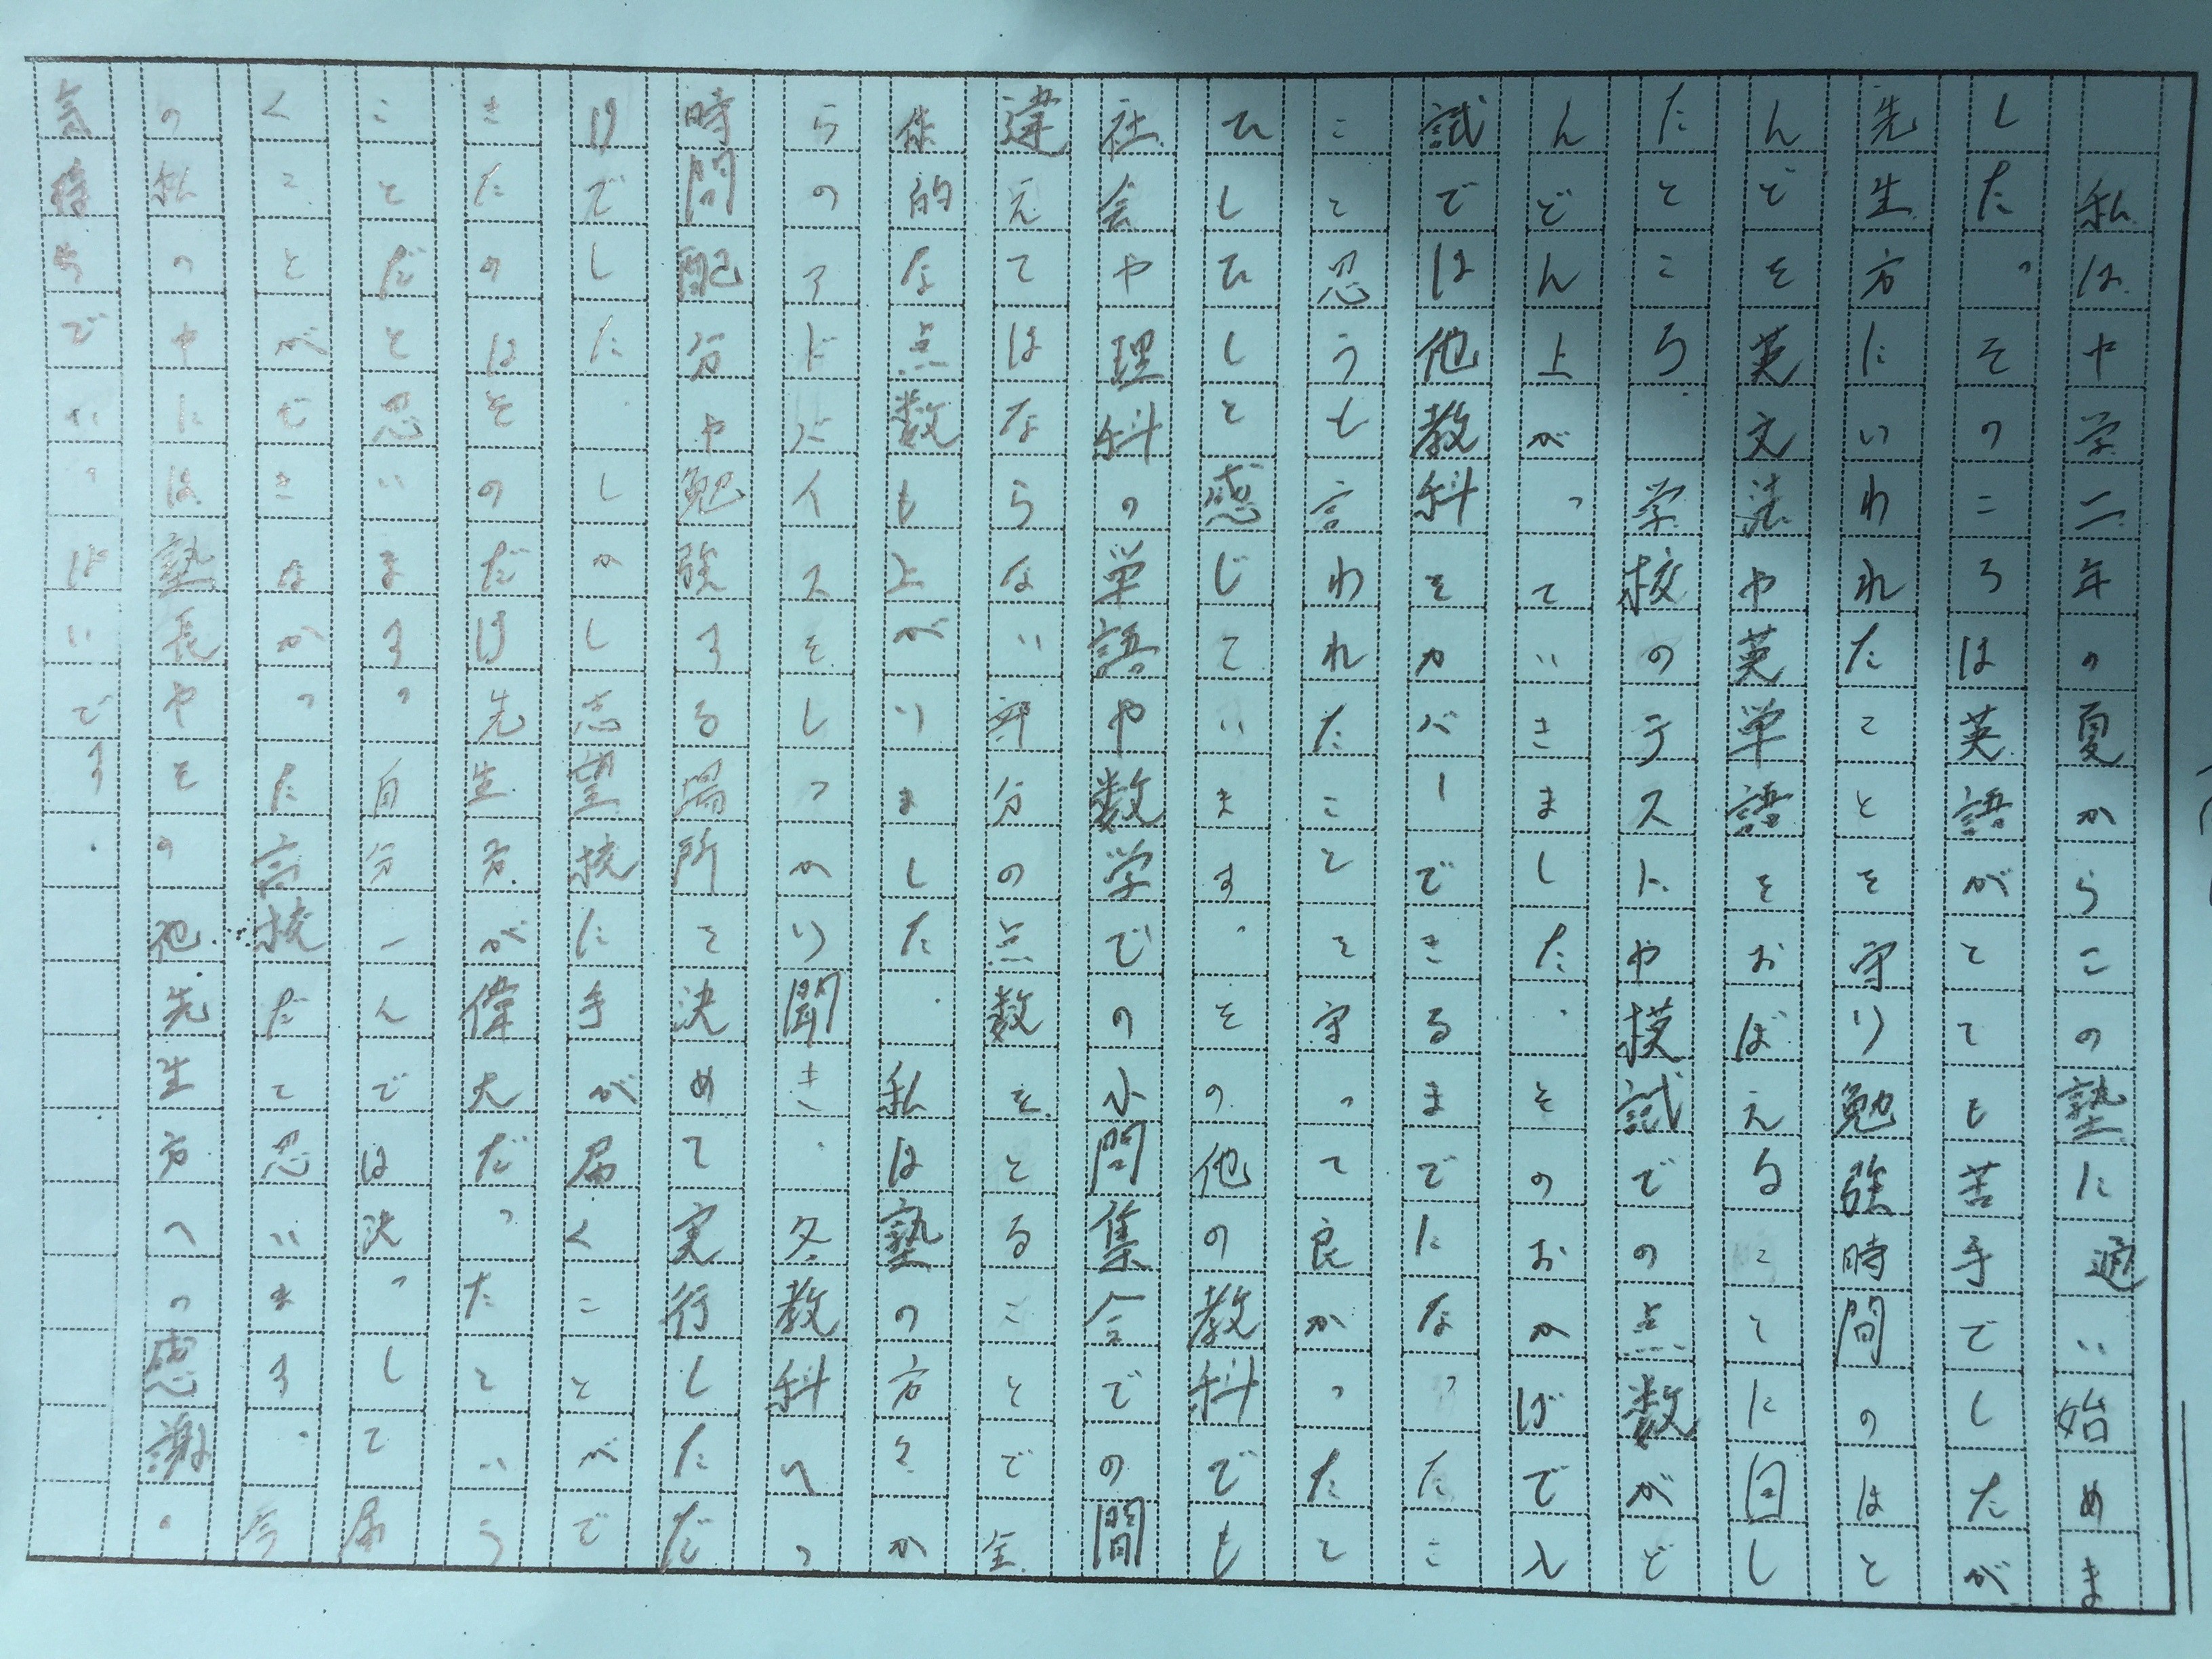 私は中学二年の夏からこの塾に通い始めま
した。そのころは英語がとても苦手でしたが
先生方にいわれたことを守り勉強時間のほと
んどを英文法や英単語をおぼえることに回し
たところ、学校のテストや模試での点数がど
んどん上がっていきました。そのおかげで入
試では他教科をカバーできるまでになったこ
こと思うも言われたことを守って良かったと
ひしひしと感じています。その他の教科でも
社会や理科の単語や数学での小問集合での間
違えてはならない部分の点数をとることで全
体的な点数も上がりました。私は塾の方々か
らのアドバイスをしっかり聞き、各教科への
時間配分や勉強する場所を決めて実行しただ
けでした。しかし志望校に手が届くことがで
きたのはそのだけ先生方が偉大だったという
ことだと思います。自分一人では決して届
くことができなかった高校だと思います。今
の私の中には塾長やその他先生方への感謝の
気持ちでいっぱいです。